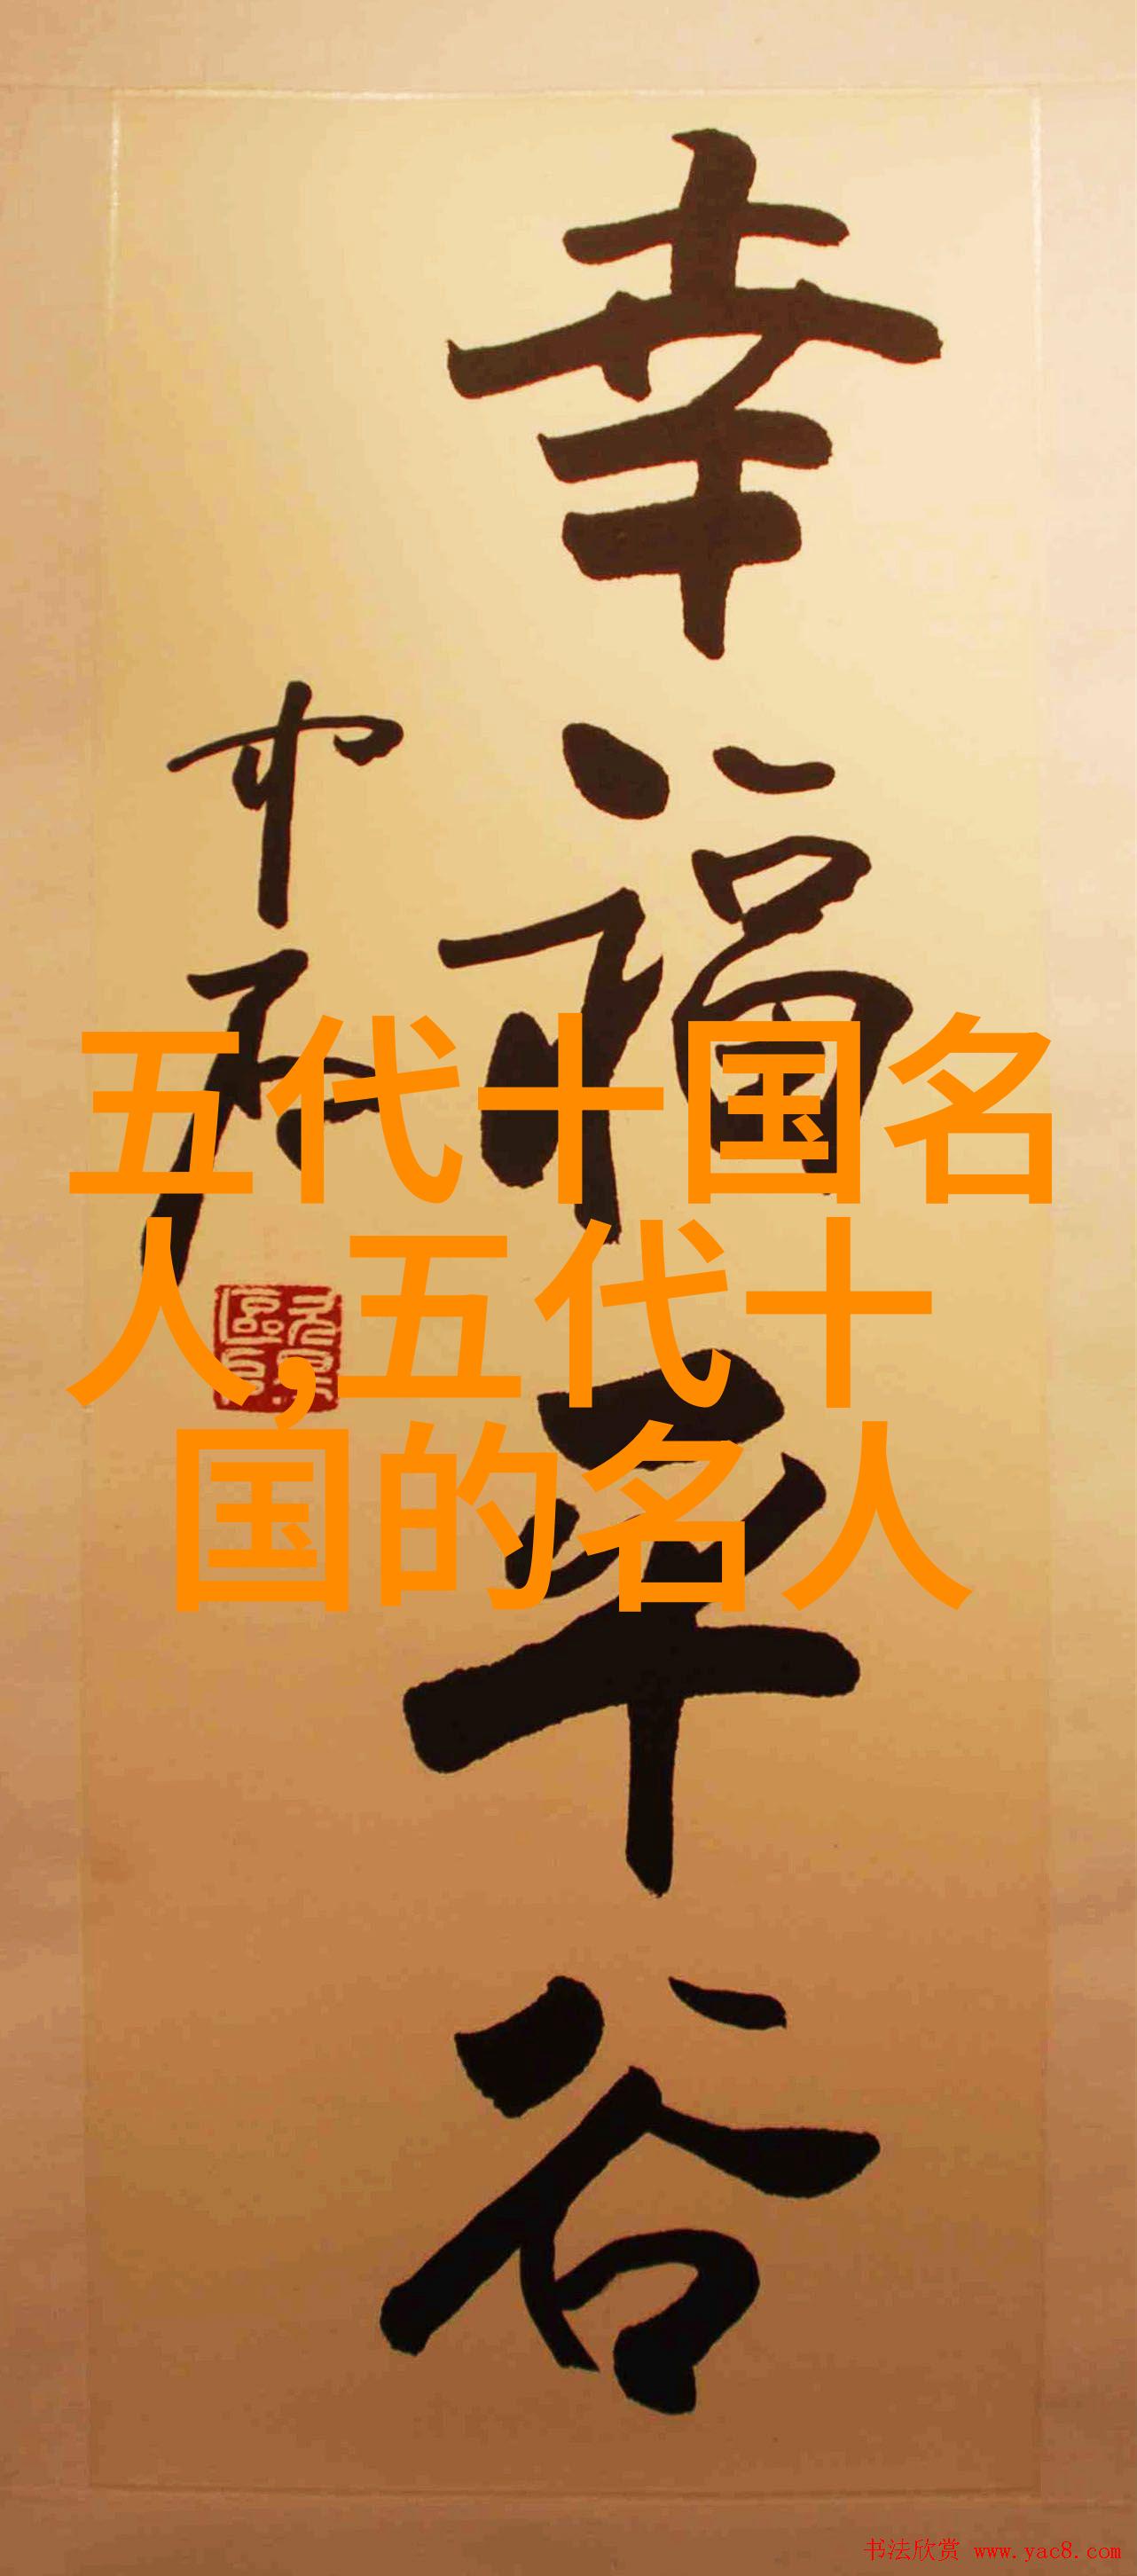 幸福平谷
五代十国名
人,五代十
国的名人
书法欣赏 www.yac8.com